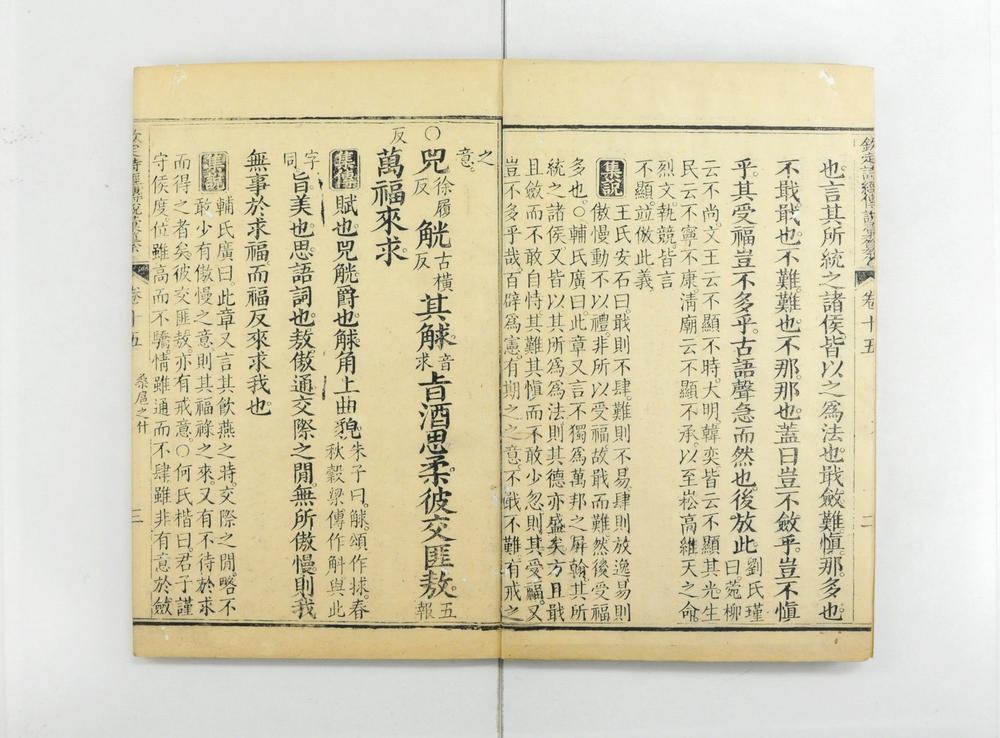 欽定詩經傳說彙纂 卷十五 二
也。言其所統之諸侯。皆以之爲法也。戢。斂。難。愼。那。多也。
不戢。戢也。不難。難也。不那。那也。蓋曰豈不斂乎。豈不愼
乎。其受福豈不多乎。古語聲急而然也。後放此。劉氏瑾
曰。菀柳
云不尚。文王云不顯不時。大明。韓奕。皆云不顯其光。生
民云不寧不康。淸廟云不顯不承。以至崧高維天之命。
烈文。執競。皆言
不顯。竝倣此義。
集說 王氏安石曰。戢則不肆。難則不易。肆則放逸。易則
傲慢。動不以禮。非所以受福。故戢而難。然後受福
多也。○輔氏廣曰。此章又言不獨爲萬邦之屛翰。其所
統之諸侯。又皆以其所爲爲法。則其德亦盛矣。方且戢
且斂而不敢自恃其難其愼而不敢少忽。則其受福。又
豈不多乎哉。百辟爲憲。有期之之意。不戢不難。有戒之
之
意。
○兕徐履反觥古橫反其觩音求旨酒思柔。彼交匪敖。五報
反
萬福來求。
集傳 賦也。兕觥。爵也。觩。角上曲貌。朱子曰。觩。頌作捄。春
秋穀梁傳作斛。與此
字
同。旨。美也。思。語詞也。敖。傲通。交際之閒。無所傲慢。則我
無事於求福。而福反來求我也。
集說 輔氏廣曰。此章又言其飮燕之時。交際之閒。略不
敢少有傲慢之意。則其福祿之來。又有不待於求
而得之者矣。彼交匪敖。亦有戒意。○何氏楷曰。君子謹
守侯度。位雖高而不驕。情雖通而不肆。雖非有意於斂
卷十五 桑扈之什 三